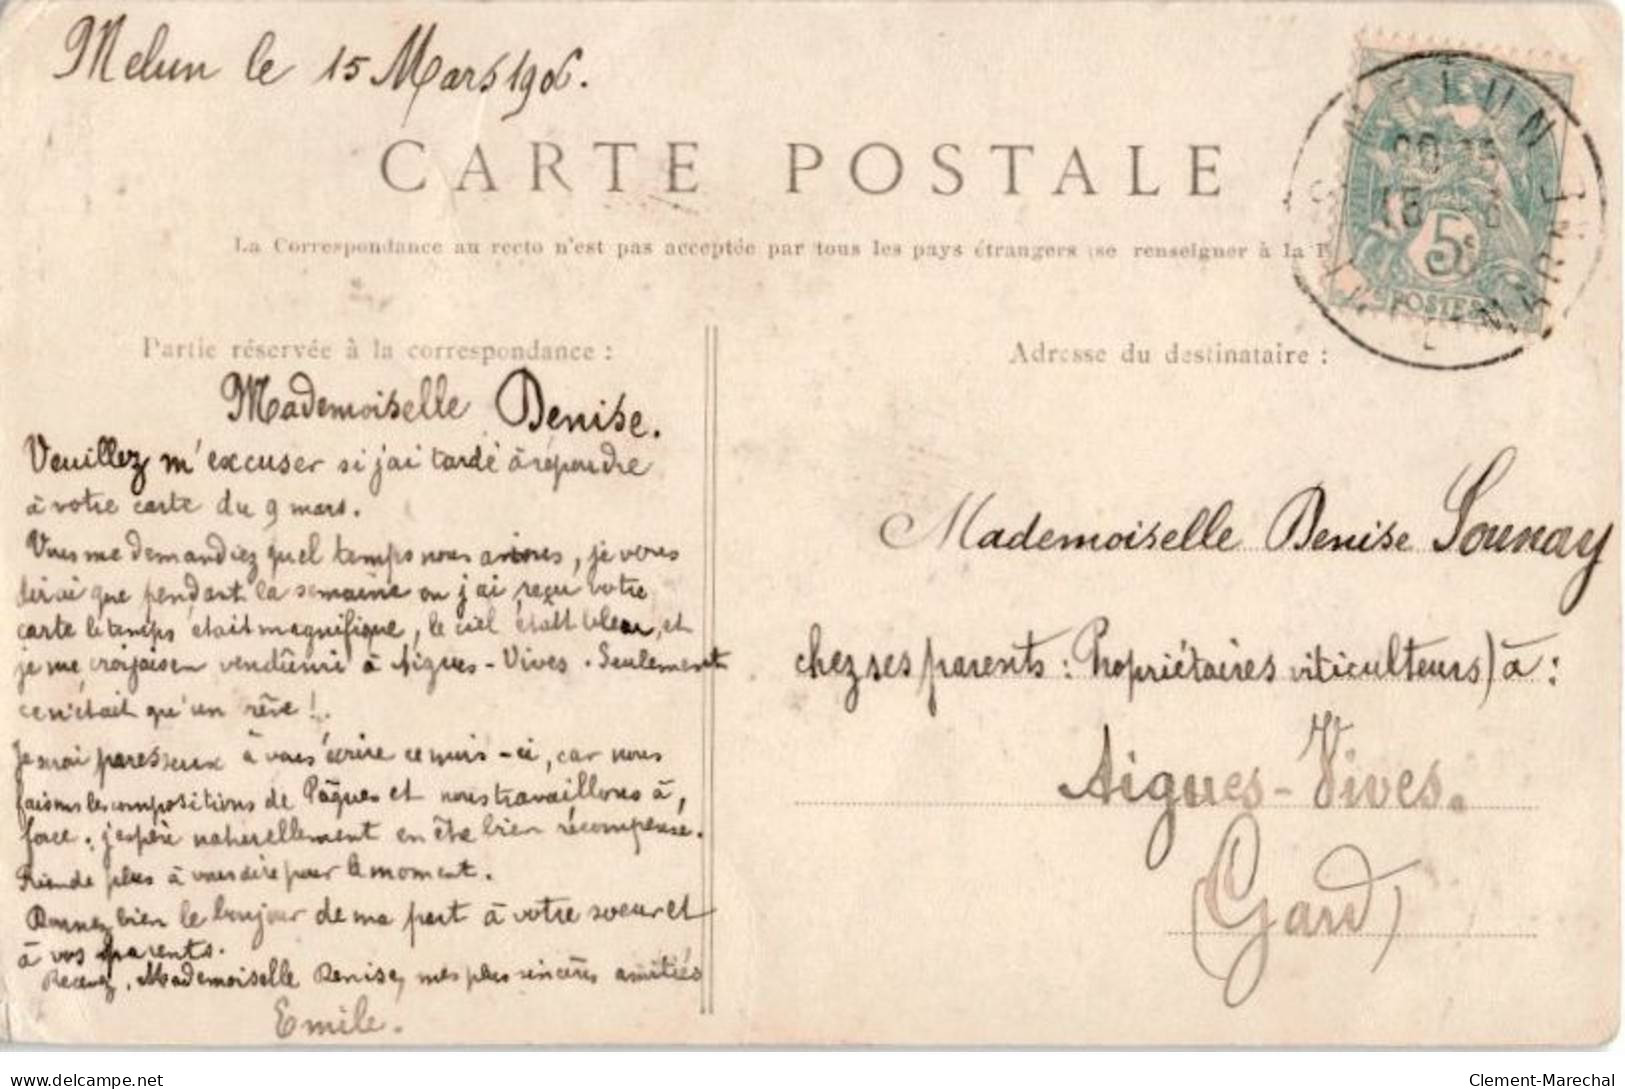 Melun le 15 Mars 1906.
MELUN
5
POSTES
CARTE POSTALE
La Correspondance au recto n'est pas acceptée par tous les pays étrangers (se renseigner à la P
Partie réservée à la correspondance :
Mademoiselle Denise.
Veuillez m'excuser si j'ai tardé à répondre
à votre carte du 9 mars.
Vous me demandiez quel temps nous avions, je vous
dirai que pendant la semaine où j'ai reçu votre
carte le temps était magnifique, le ciel était bleau, et
je me croijais en vendûmi à Aigues-Vives. Seulement
ce n'était qu'un rêve !.
Je serai paresseux à vous écrire ce mois-ci, car nous
faisons les compositions de Pâques et nous travaillons à,
force, j'espère naturellement en être bien récompensé.
Rien de plus à vous dire pour le moment.
Donnez bien le bonjour de ma part à votre soeur et
à vos parents.
Recevez, Mademoiselle Denise, mes plus sincères amitiés
Emile.
Adresse du destinataire :
Mademoiselle Denise Sounay
chez ses parents : Propriétaires viticulteurs) à :
Aigues-Vives.
(Gard)
Clement-Marechal
delcampe.net